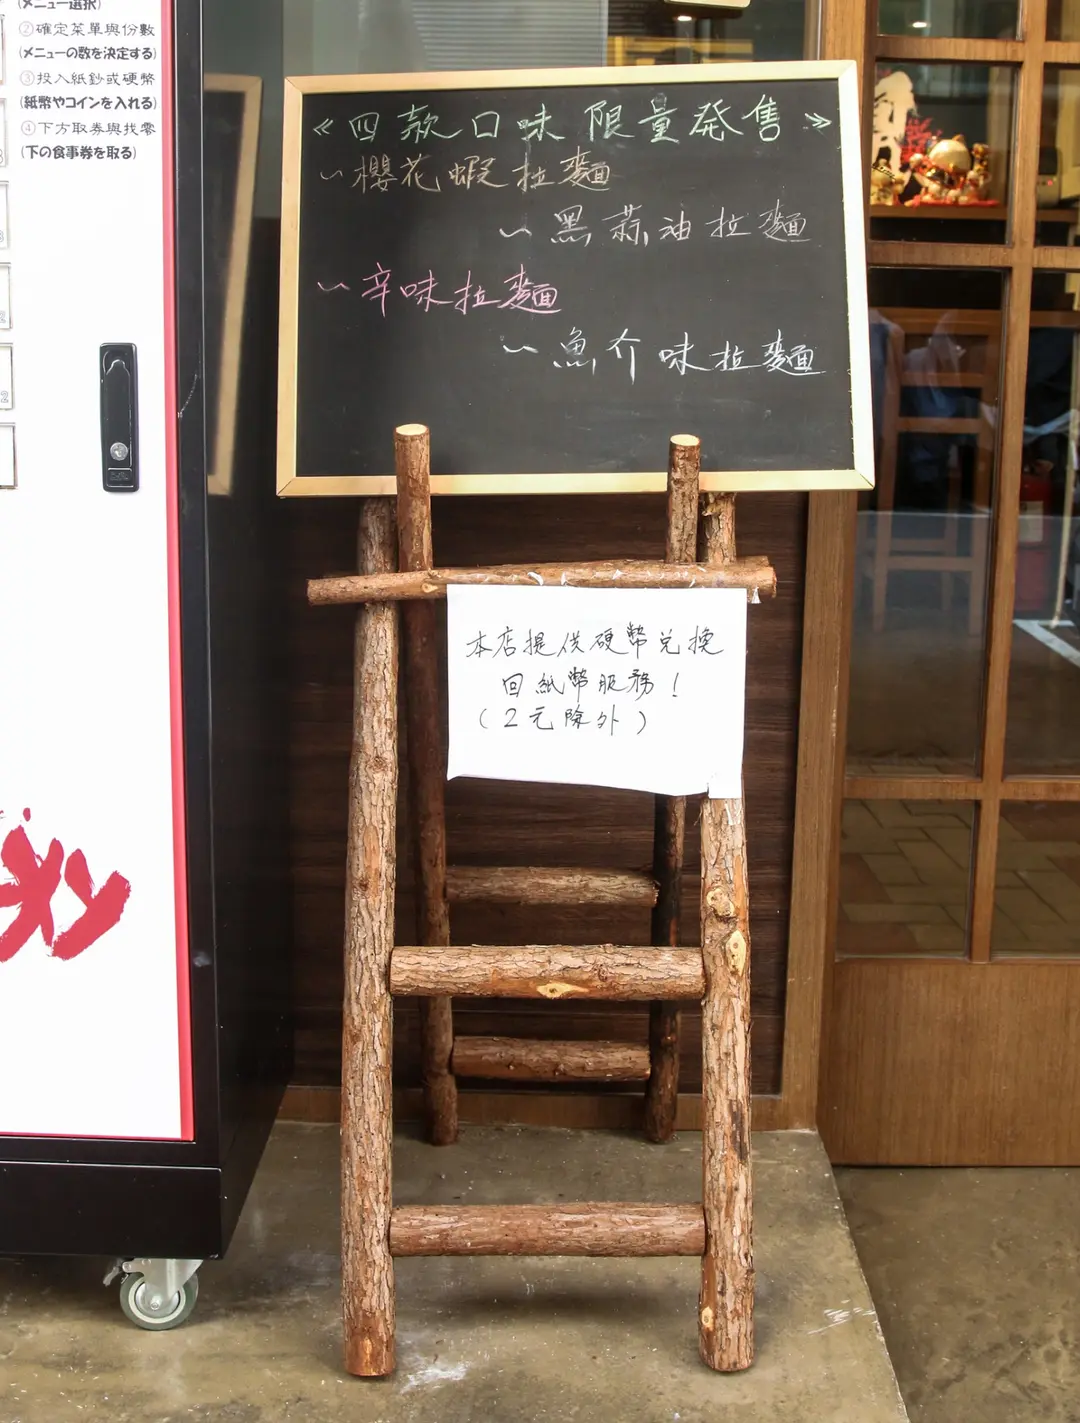 (メニュー選択)
②確定菜單與份數
(メニューの数を決定する)
③投入紙鈔或硬幣
(紙幣やコインを入れる)
④下方取券與找零
(下の食事券を取る)
《四款口味 限量発售》
~櫻花蝦拉麵
~黑蒜油拉麵
~辛味拉麵
~魚介味拉麵
本店提供硬幣兌換
回紙幣服務！
(2元除外)